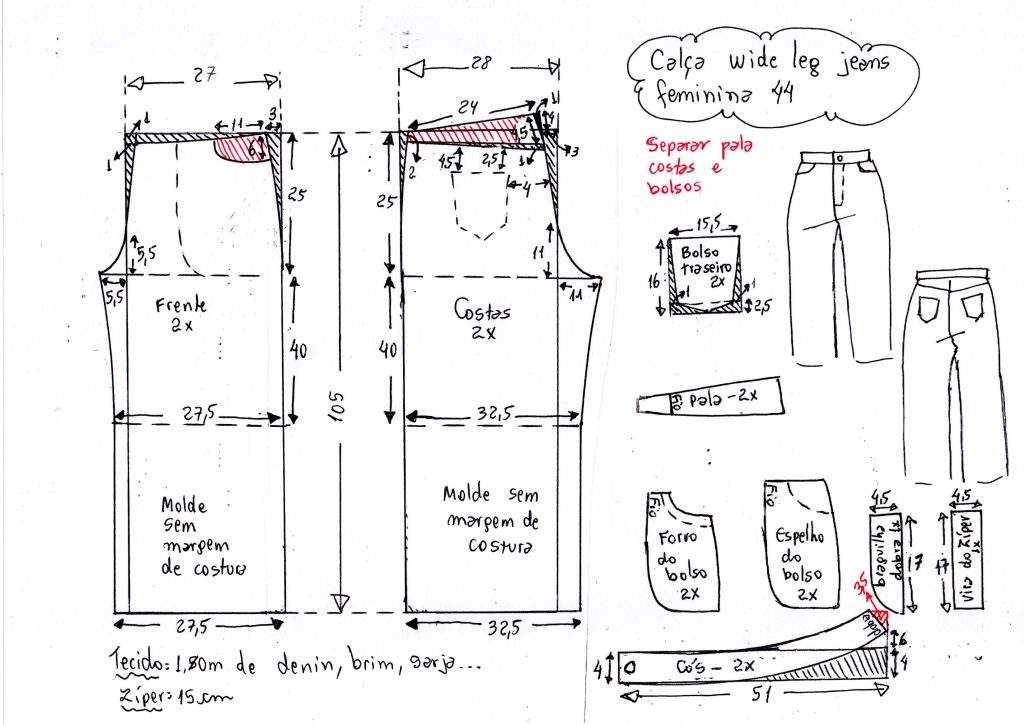 27
28
Calça wide leg jeans
feminina 44
24
1
11
3
1
4
4,5
6
1
1
3
2
4,5
2,5
4
25
25
Separar pala
costas e
bolsos
5,5
5,5
11
11
15,5
Bolso
traseiro
2x
16
1
1
2,5
Frente
2x
Costas
2x
40
40
105
Fio
Pala-2x
27,5
32,5
Molde
sem
margem
de costura
Molde sem
margem de
costura
Fio
Forro
do
bolso
2x
Fio
Espelho
do
bolso
2x
4,5
braguilha
dobra x1
17
4,5
17
vira do Zíper
x1
3,5
dobra
6
4
4
Cós - 2x
51
27,5
32,5
Tecido: 1,80m de denin, brim, sarja...
Zíper: 15cm